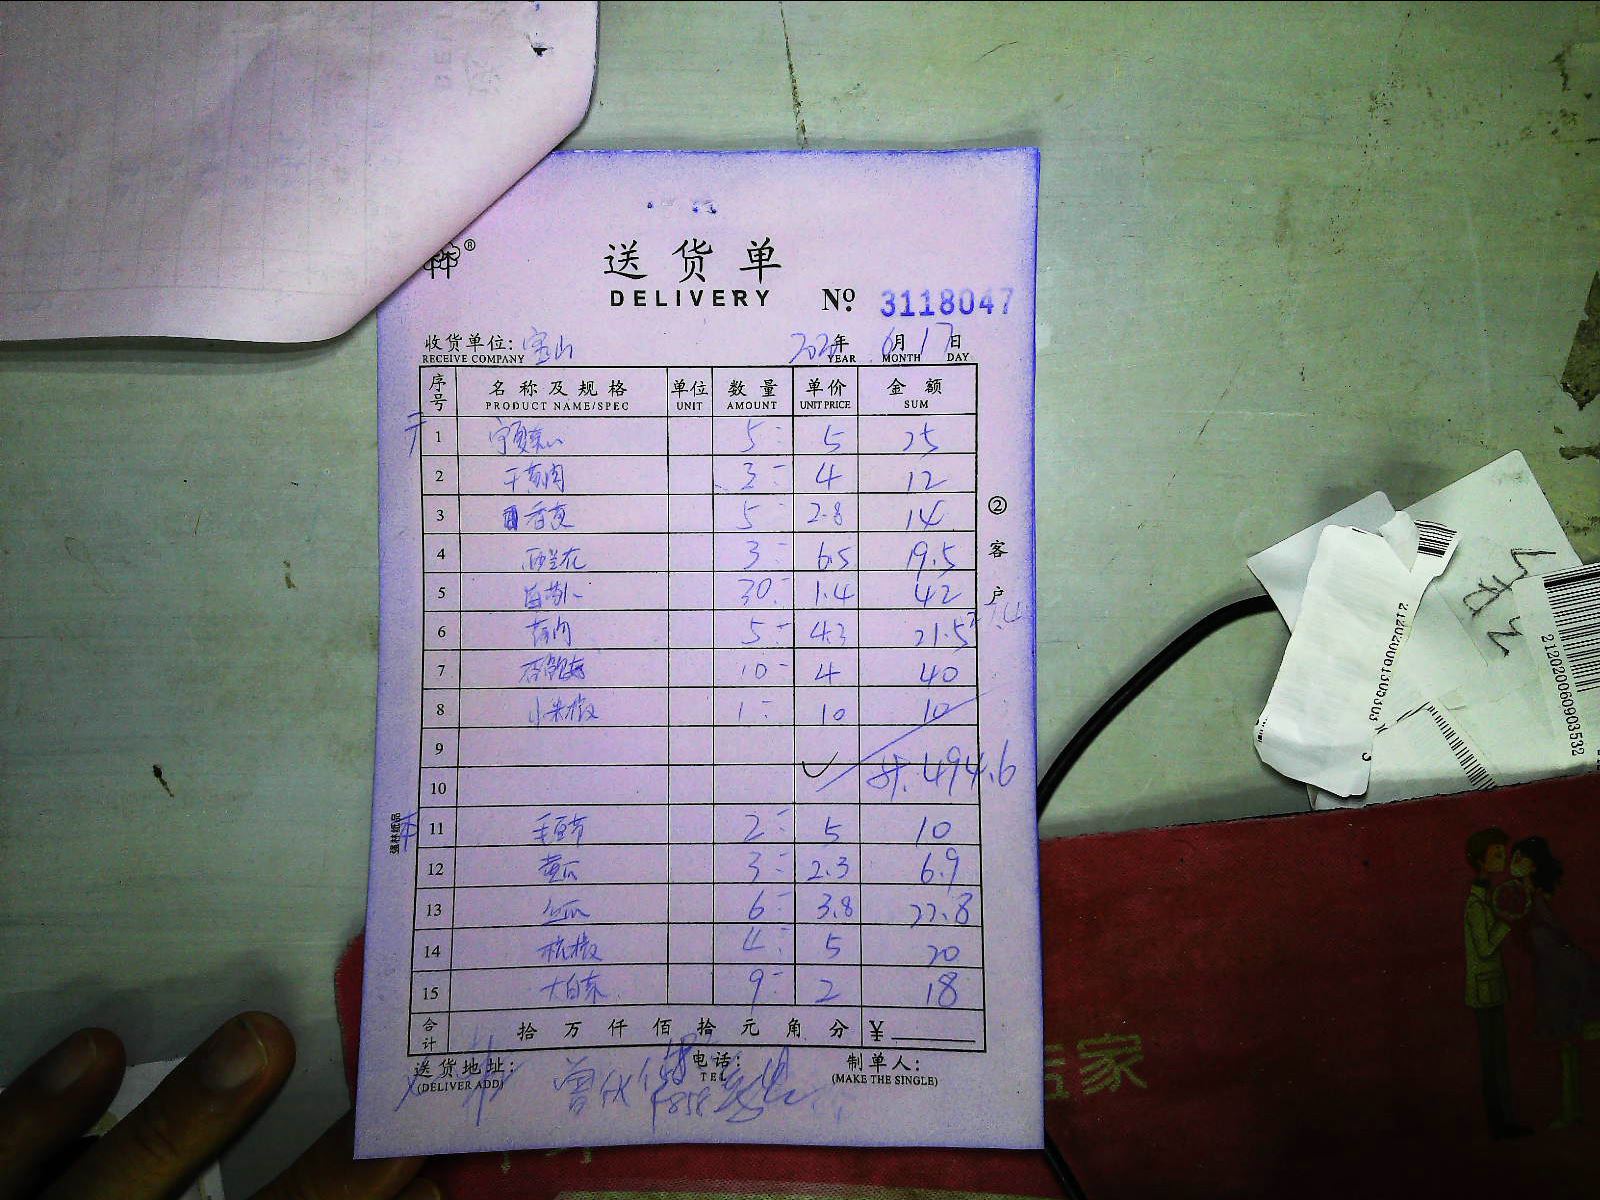 送货单
DELIVERY
No. 3118047
收货单位: 宝山
RECEIVE COMPANY
2020年 6月 17日
YEAR MONTH DAY
序号 名称及规格 单位 数量 单价 金额
PRODUCT NAME/SPEC UNIT AMOUNT UNIT PRICE SUM
1 5 5 25
2 3 4 12
3 香菜 5 2.8 14
4 西兰花 3 6.5 19.5
5 白萝卜 30 1.4 42
6 5 4.3 21.5
7 10 4 40
8 小米椒 1 10 10
9
10 共. 494.6
11 毛豆节 2 5 10
12 黄瓜 3 2.3 6.9
13 丝瓜 6 3.8 22.8
14 杭椒 4 5 20
15 大白菜 9 2 18
合计 拾 万 仟 佰 拾 元 角 分 ¥
送货地址: 电话: 制单人:
(DELIVER ADD) TEL (MAKE THE SINGLE)
②客户
强林纸品
212020061305303
212020060903532
家